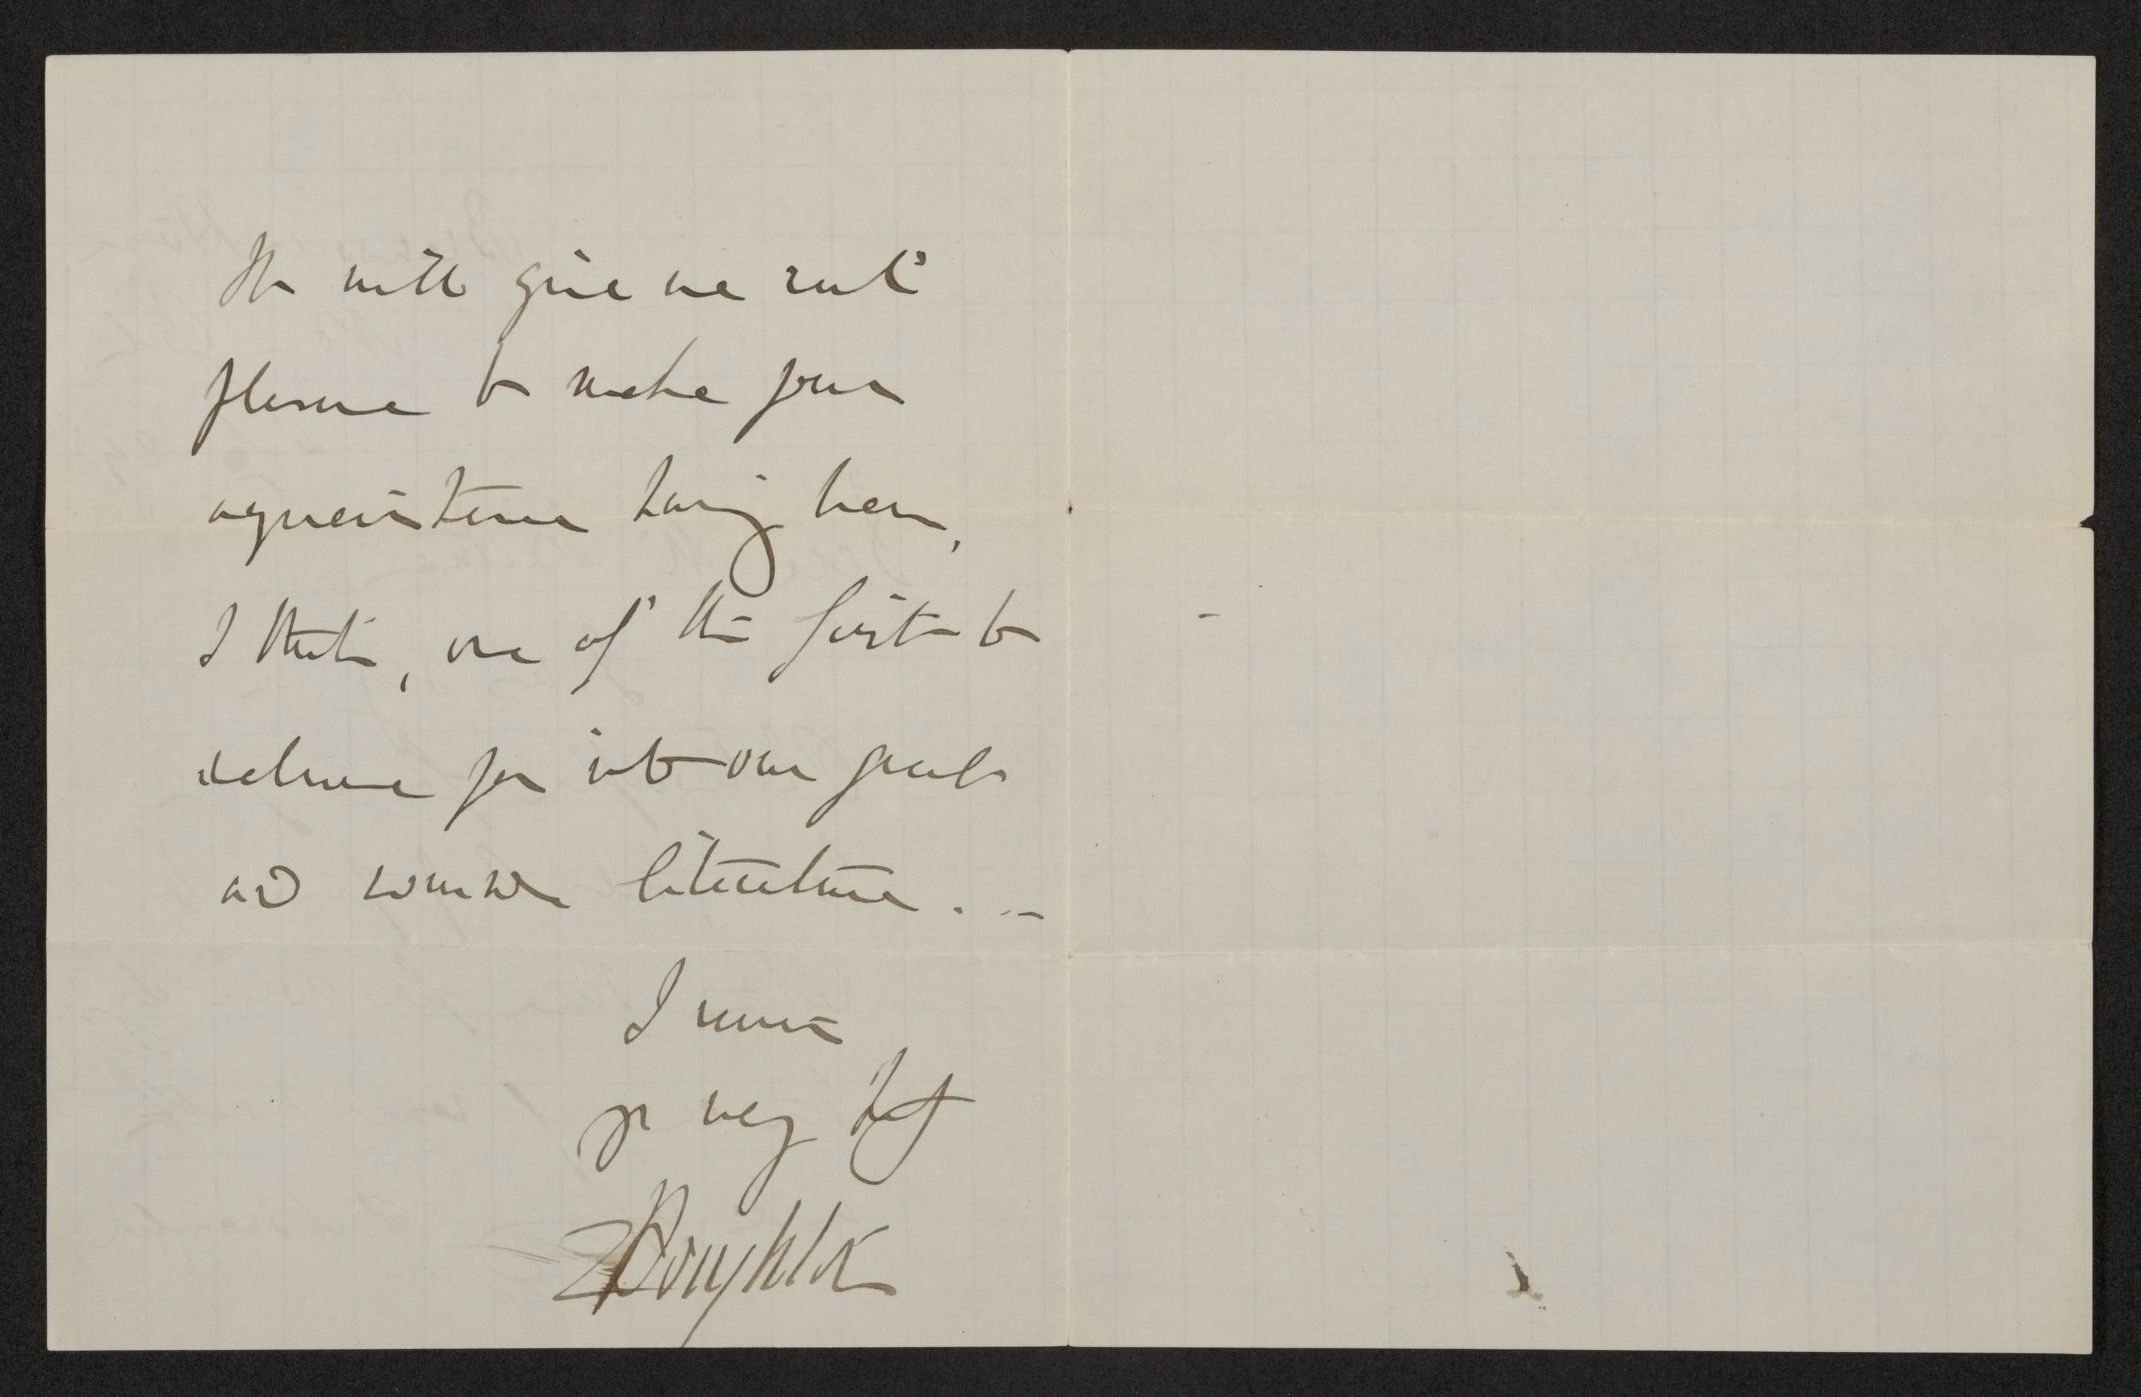 It will give me real
pleasure to make your
acquaintance having been,
I think, one of the first to
welcome you into our great
and common literature. –
I remain
yr very
Houghton